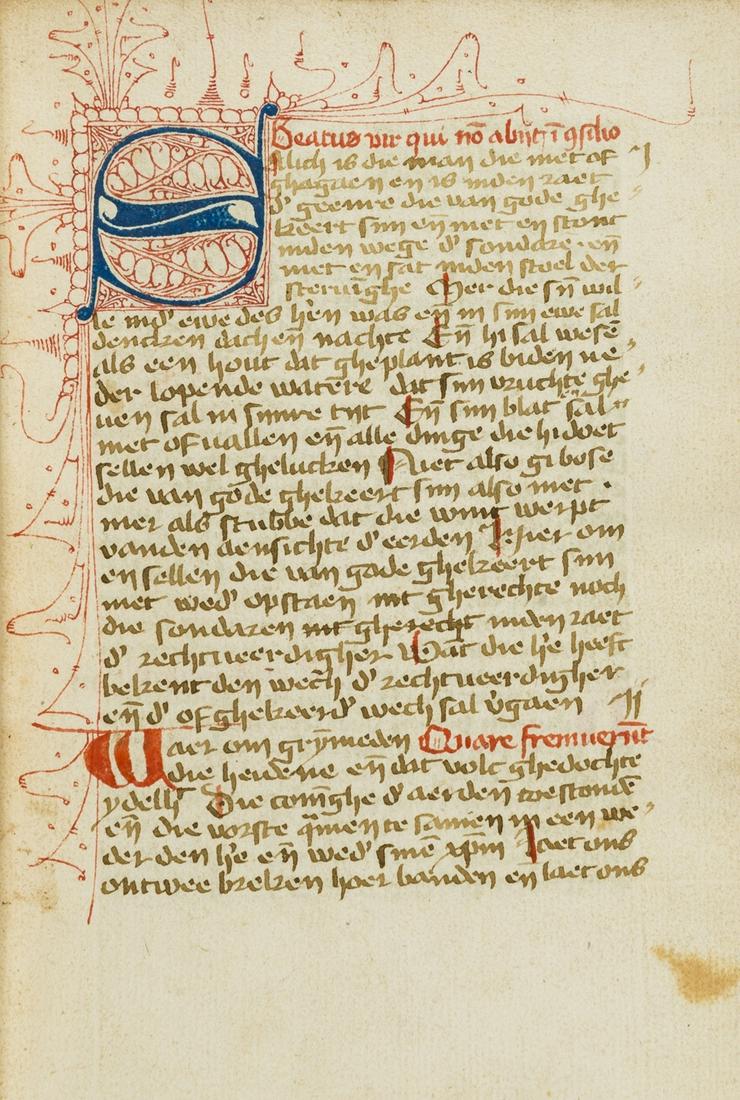 Beatus vir qui nō abijt ī ꝯsilio
Salich is die man die niet of j
ghegaen en is inden raet
d' geenre die van gode ghe-
keert sijn eñ niet en stont
inden wege d' sondare · eñ
niet en sat inden stoel der
steruīghe Mer die sijn wil-
le ind' ewe des h'en was eñ in sijn ewe sal
dencken dach eñ nachte Eñ hi sal wesē
als een hout dat gheplant is biden ne-
der lopende watere dat sijn vruchte ghe-
uen sal in sijnre tijt Eñ sijn blat sal
niet of uallen eñ alle dinge die hi doet
sellen wel ghelucken Niet also gi bose
die van gode ghekeert sijn also niet ·
mer als stubbe dat die wint werpt
vanden aensichte d' eerden Hier om
en sellen die van gode ghekeert sijn
niet wed' opstaen int gherechte noch
die sondaren int gherecht inden raet
d' rechtueerdigher Wāt die h'e heeft
bekent den wech d' rechtueerdigher
eñ d' ofghekeerd' wech sal v'gaen ij
Waer om grijmeden Quare fremuerūt
die heidene eñ dat volc ghedochte
ydelh' Die conīghe d' aerden toestondē
eñ die vorste quamen te samen in een we-
der den h'e eñ wed' sinē xpm̄ Laet ons
ontwee breken hoer banden eñ laet ons